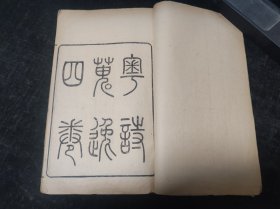 粵詩
蒐逸
四卷